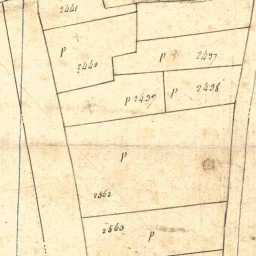 2441
P
2440
P 2497
P 2499
P 2498
P
2562
2563
P